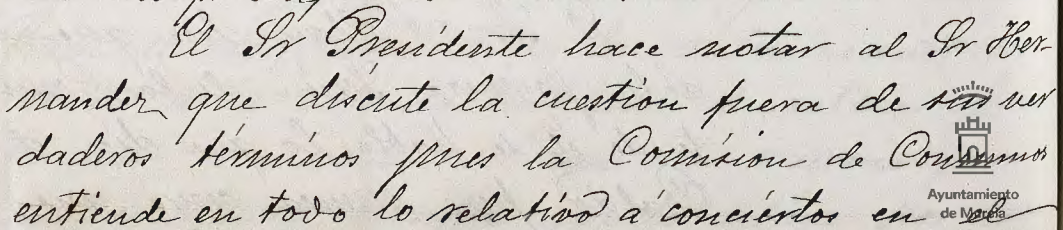 El Sr Presidente hace notar al Sr Her-
nandez que discute la cuestion fuera de sus ver
daderos términos pues la Comision de Consumos
entiende en todo lo relativo á conciertos en el
Ayuntamiento
de Murcia